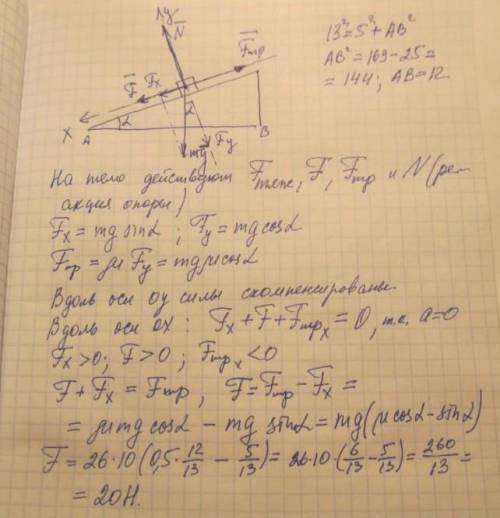 13² = 5² + AB²
AB² = 169 - 25 =
= 144; AB = 12
y
N
Fтр
F
Fx
X
A
α
α
B
mg
Fy
На тело действуют Fтяж, F, Fтр и N (ре-
акция опоры)
Fx = mg sinα ; Fy = mg cosα
Fтр = μ Fy = mgμcosα
Вдоль оси оу силы скомпенсированы
Вдоль оси ох : Fx + F + Fтрx = 0, т.к. a=0
Fx>0; F>0 ; Fтрx<0
F + Fx = Fтр , F = Fтр - Fx =
= μmg cosα - mg sinα = mg(μcosα - sinα)
F = 26·10(0,5·12/13 - 5/13) = 26·10·(6/13 - 5/13) = 260/13 =
= 20Н.